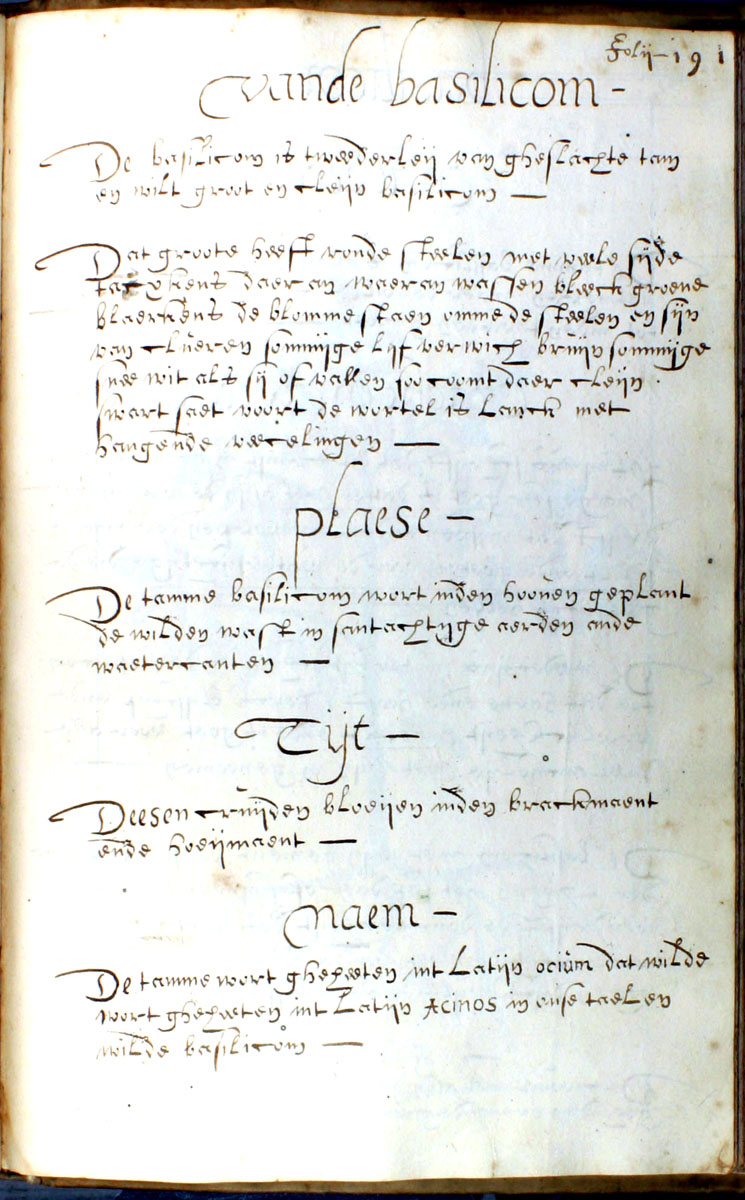 Folij 191
vande basilicom -
De basilicom is tweederleij van gheslachte tam
en wilt groot en cleijn basilicom —
Dat groote heeft ronde steelen met veele sijde
tacxkens daer an waer an wassen bleeck groene
blaerkens de blomme staen omme de steelen en sijn
van clueren sommijge lijfverwich bruijn sommijge
snee wit als sij of vallen soo coomt daer cleijn
swart saet voort de wortel is lanck met
hangende veeselingen —
plaese -
De tamme basilicom wort inden hooven geplant
de wilden wast in santachtijge aerden ande
waetercanten —
Tijt —
Deesen cruijden bloeijen inden brackmaent
ende hoeijmaent —
naem -
De tamme wort gheheeten int Latijn ocium dat wilde
wort gheheeten int Latijn Acinos in onse taelen
wilde basilicom —